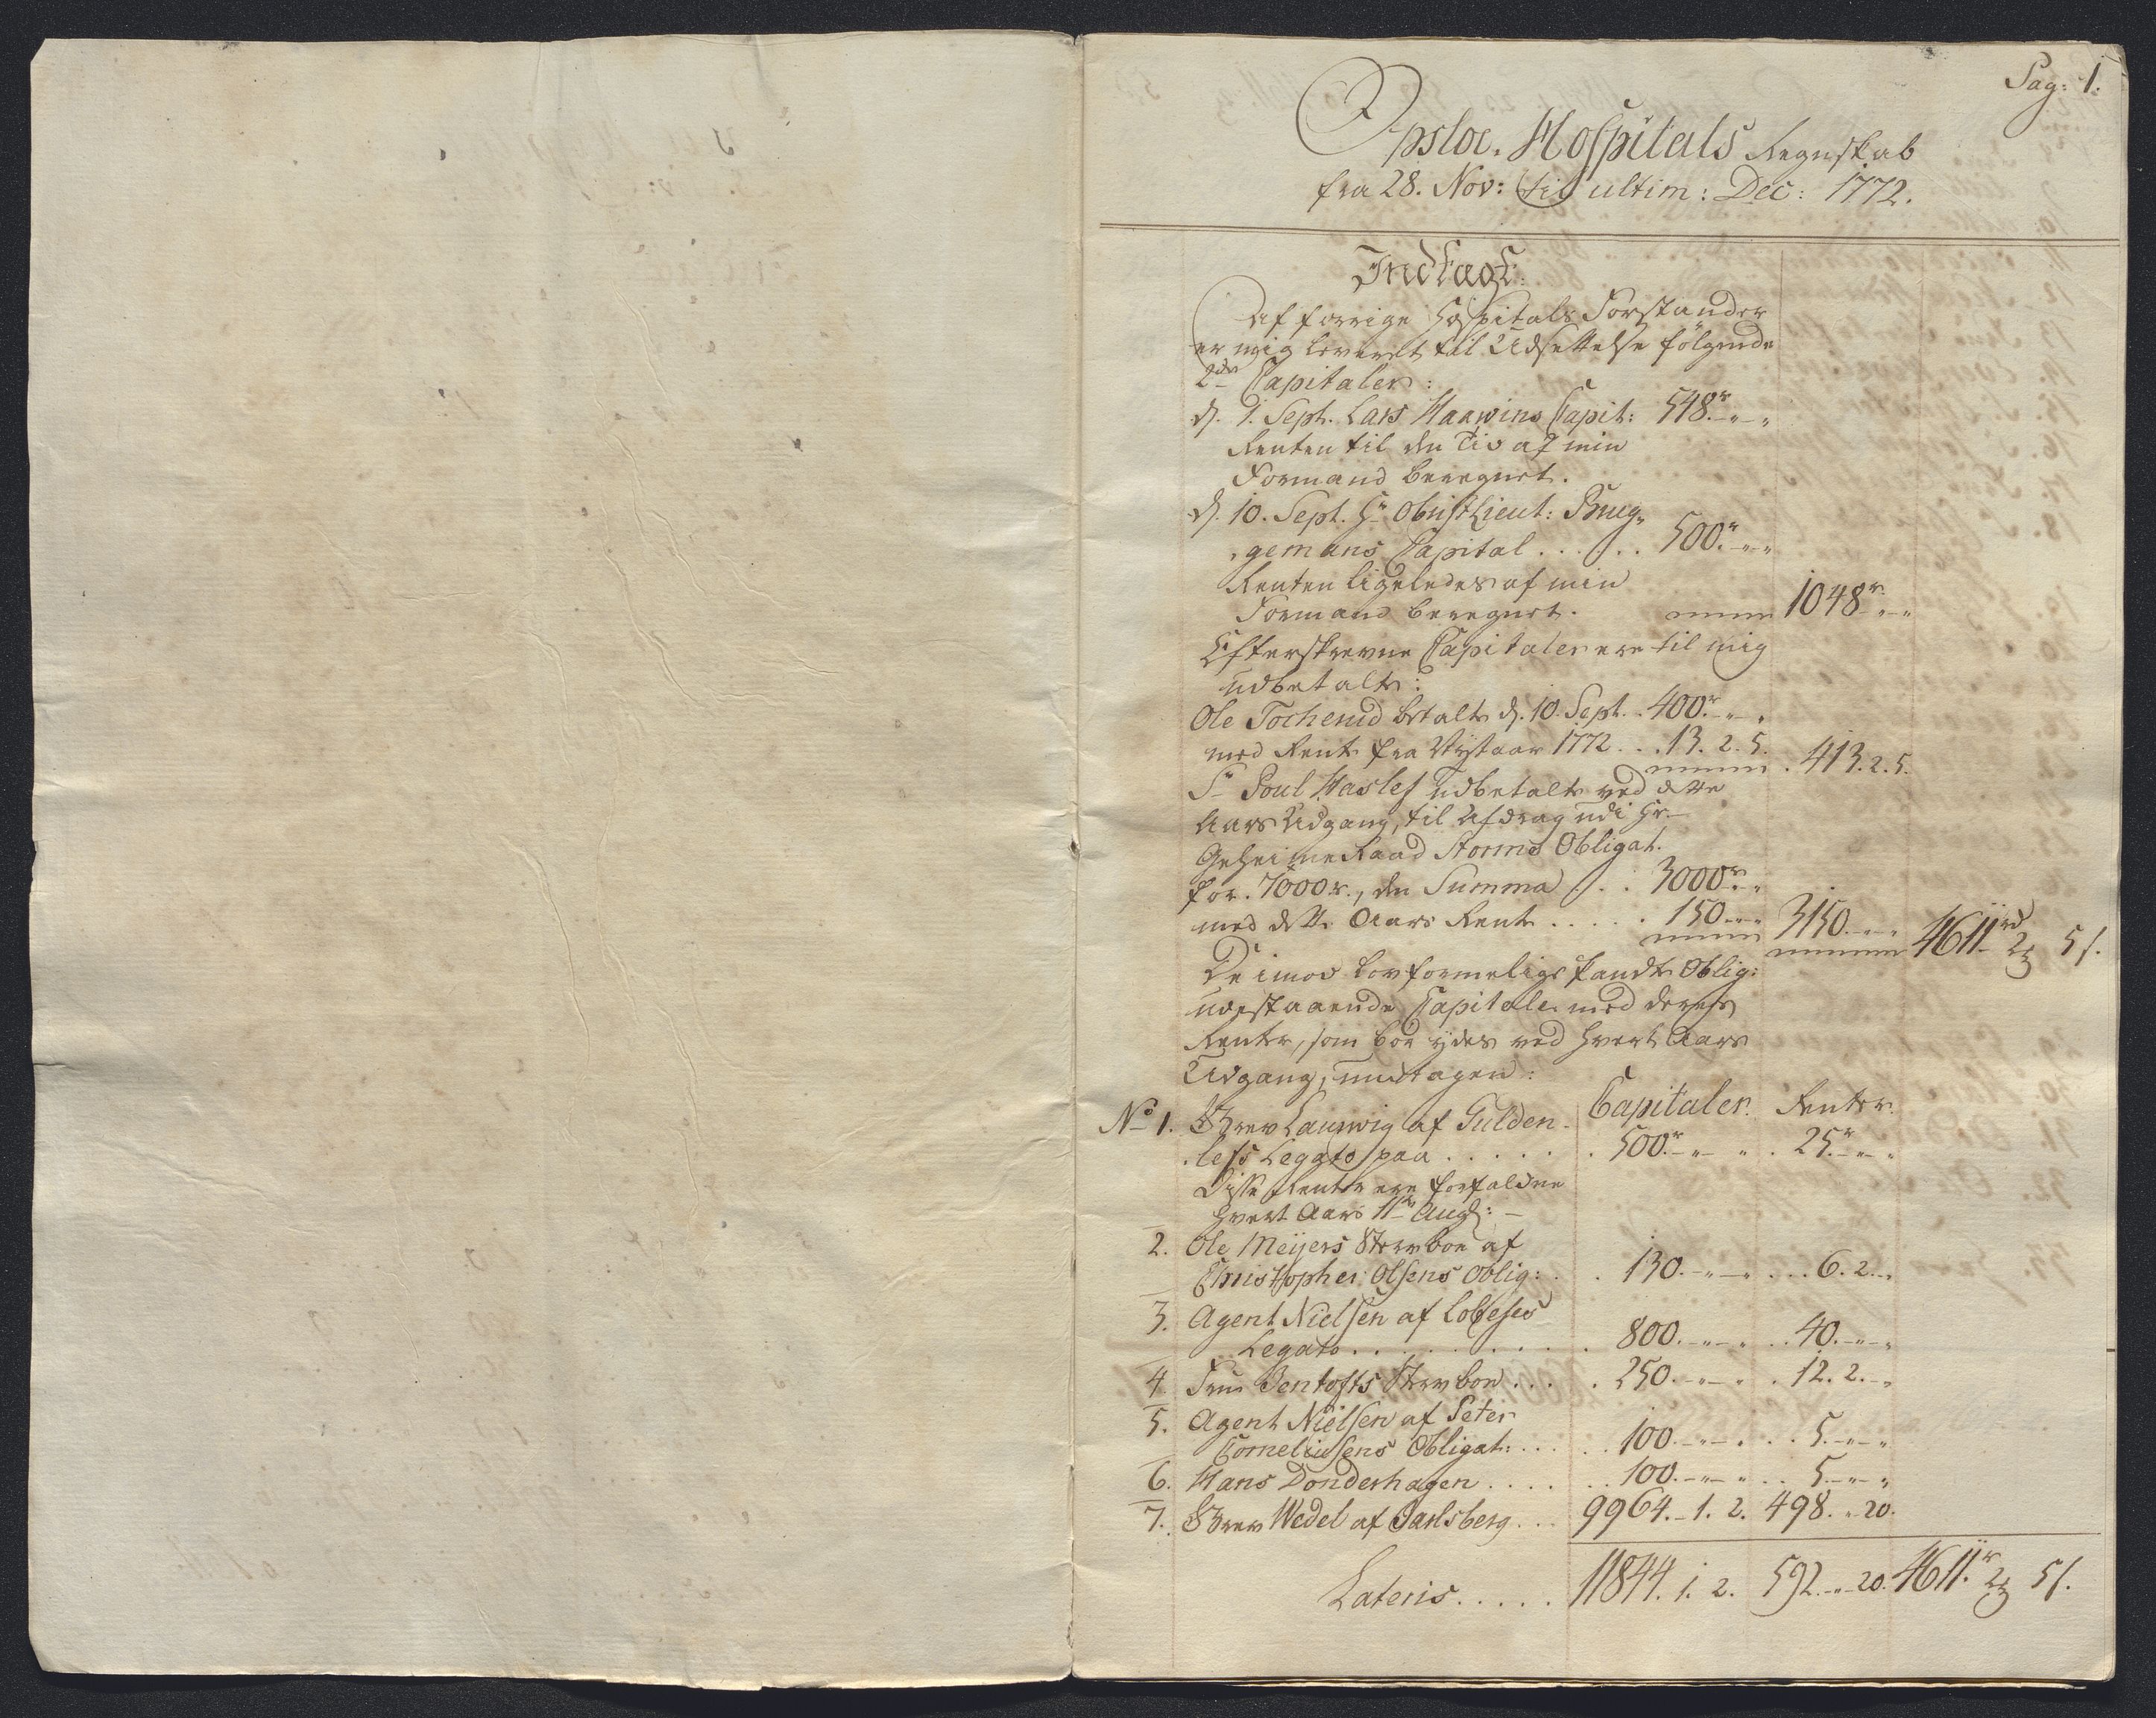 Pag: 1.
Opsloe Hospitals Regnskab
fra 28. Nov: til ultim: Dec: 1772.
Indtægt:
Af forrige Hospitals Forstander
er mig leveret til Udsettelse følgende
2de Capitaler:
d. 1. Sept. Lars Capit: 548.r „ „
Renten til den Tid af min
Formand beregnet.
d. 10. Sept. Hr ObristLieut: Brug„
„gemans Capital . . . . . 500.r „ „
Renten ligeledes af min
Formand beregnet. 1048r „ „
Efterskrevne Capitaler ere til mig
udbetalte:
Ole Tocherud betalte d. 10. Sept. 400.r „ „
med Rente fra Nytaar 1772 . . 13. 2. 5. 413. 2. 5.
Sr Poul udbetalte ved dette
Aars Udgang, til Afdrag udi Hr
Geheime Raad Storms Obligat.
for 7000r., den Summa . . . 3000r „ „
med dette Aars Rente . . . . . 150. „ „ 3150. „ „ 4611rd 2 5 s.
De imod lovformelige Pandte Oblig:
udestaaende Capitaler med deres
Renter, som bør ydes ved hvert Aars
Udgang, undtagen:
Capitaler. Renter.
No 1. Grev Laurwig af Gulden-
„lefs Legato paa . . . . . . 500.r „ „ . 25.r „ „
Disse Renter ere forfaldne
hvert Aars 11te Aug:
2. Ole Meijers Sterboe af
Christopher Olsens Oblig: . . 130. „ „ . . . 6. 2. „
3. Agent Nielsen af
Legato . . . . . . . . . 800. „ „ . . 40. „ „
4. Frue Jentofts Sterboe . . . . 250. „ „ . 12. 2. „
5. Agent Nielsen af Peter
Corneliusens Obligat: . . . . . 100. „ „ . . . 5. „ „
6. Hans Donderhagen . . . . . . 100. „ „ . . 5. „ „
7. Grev Wedel af Jarlsberg . . . 9964. 1. 2. 498. „ 20.
Lateris . . . . . 11844. 1. 2. 592. „ 20. 4611.r 2 5 s.